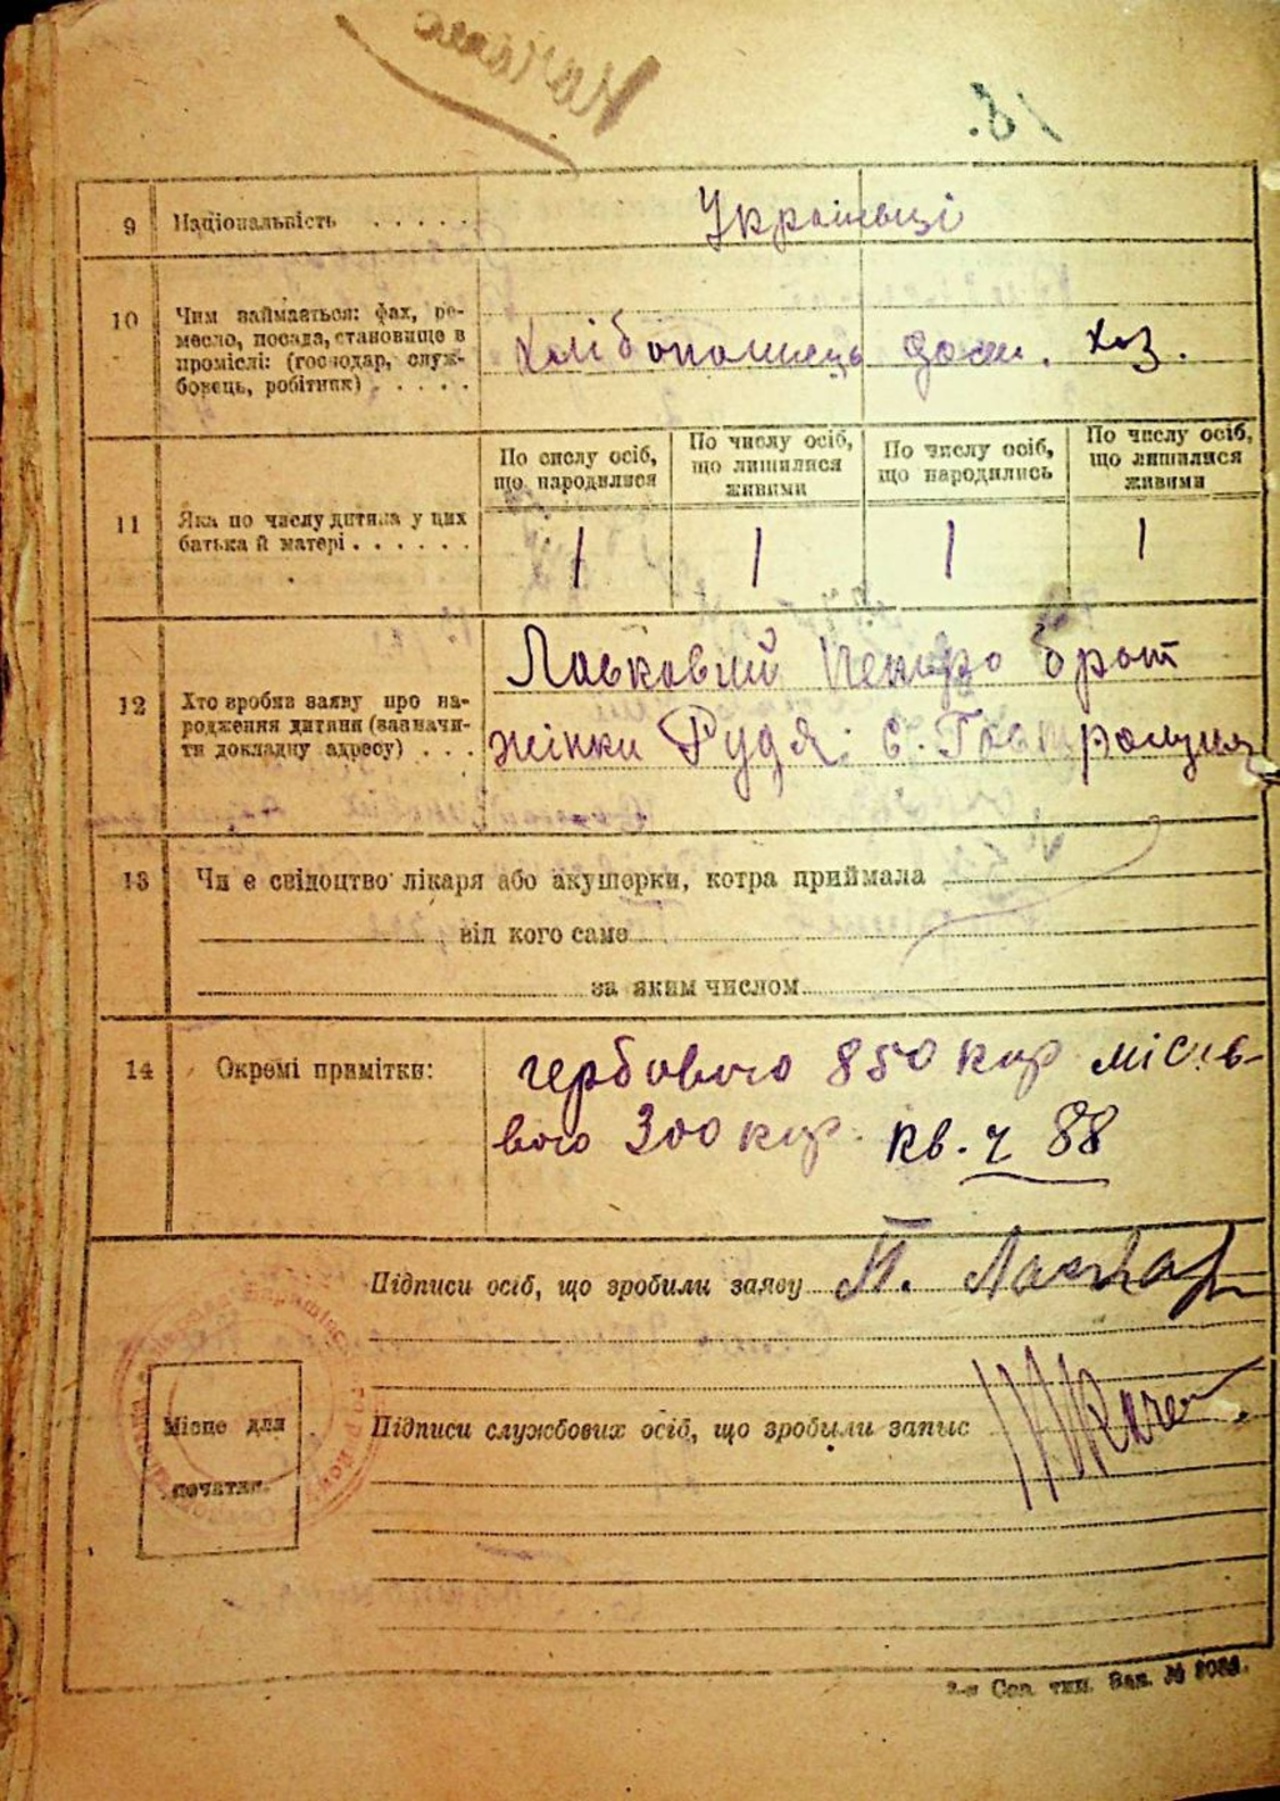 9 Національність . . . . . Українці
10 Чим займається: фах, ре-
месло, посада, становище в
проміслі: (господар, служ-
бовець, робітник) . . . . .
Хлібопашець дом. хоз.
По сислу осіб,
що народилися
По числу осіб,
що лишилися
живими
По числу осіб,
що народились
По числу осіб,
що лишилися
живими
11 Яка по числу дитина у цих
батька й матері . . . . . .
1 1 1 1
12 Хто зробив заяву про на-
родження дитини (зазначи-
ти докладну адресу) . . .
Петро брат
жінки Рудя. с.
13 Чи є свідоцтво лікаря або акушерки, котра приймала
від кого саме
за яким числом
14 Окремі примітки:
гербового 850 кар місце-
вого 300 кар. кв. ч 88
Підписи осіб, що зробили заяву П.
Підписи службових осіб, що зробили запис
Місце для
печатки.
Зак. №